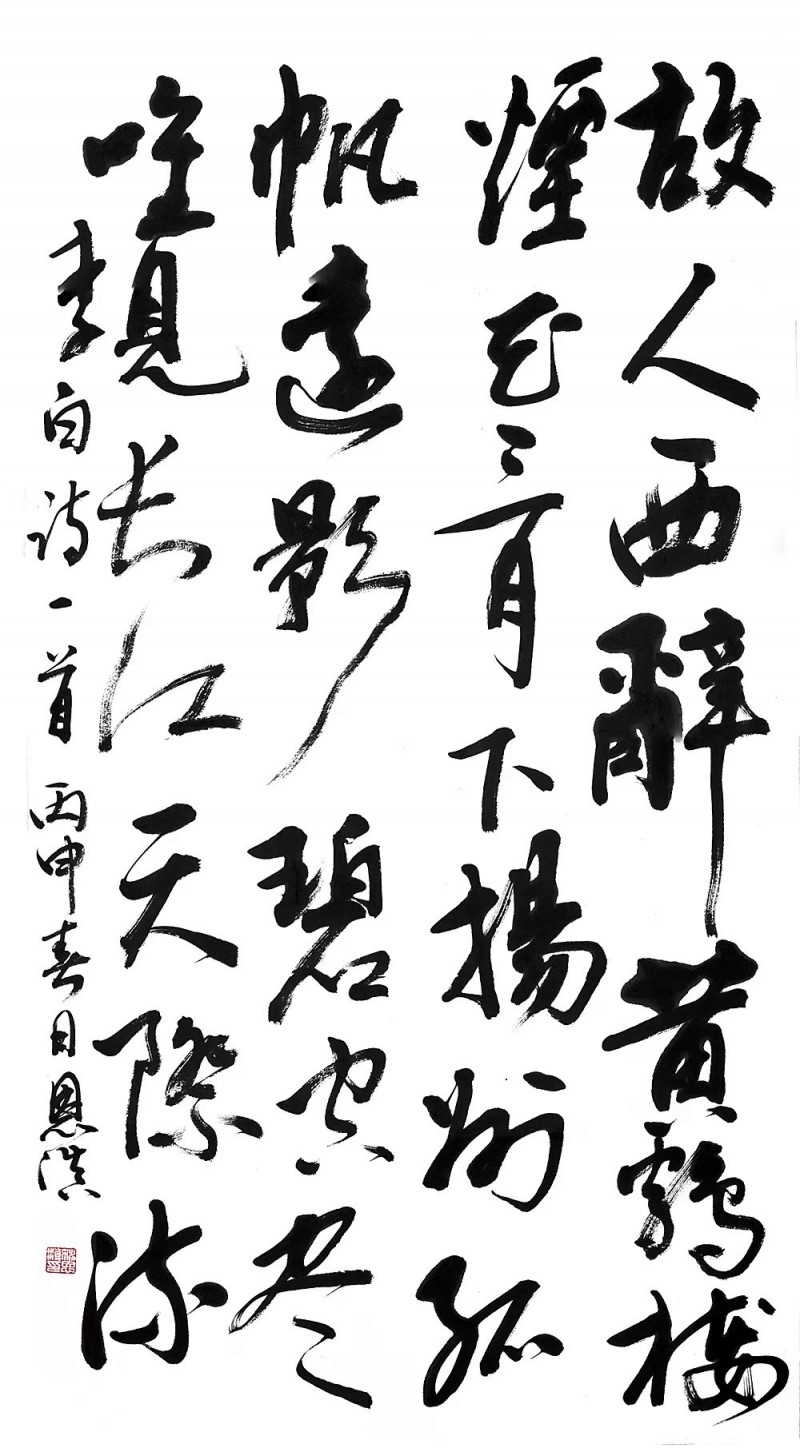 故人西辭黄鶴樓
煙花三月下揚州孤
帆遠影碧空尽
唯見长江天際流
李白诗一首 丙申春日恩